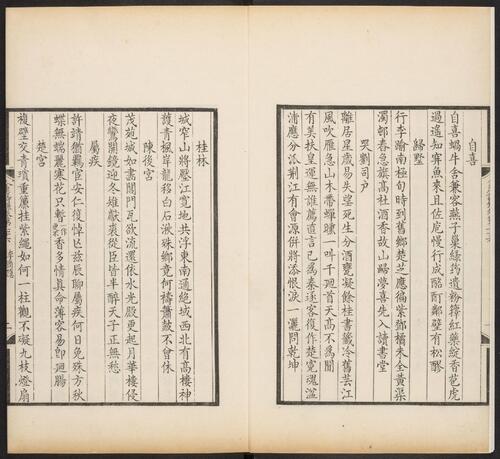 自喜
自喜蝸牛舍兼容燕子巢綠筠遺粉籜紅藥綻香苞虎
過遙知穽魚來且佐庖慢行成酩酊鄰壁有松醪
歸墅
行李踰南極旬時到舊鄉楚芝應徧紫鄧橘未全黃渠
濁邨舂急旗高社酒香故山歸夢喜先入讀書堂
哭劉司户
離居星歲易失望死生分酒甕凝餘桂書籤冷舊芸江
風吹雁急山木帶蟬曛一叫千迴首天高不為聞
有美扶皇運無誰薦直言已為秦逐客復作楚寃魂湓
浦應分派荊江有會源併將添恨淚一灑問乾坤
桂林
城窄山將壓江寬地共浮東南通絕域西北有高樓神
護青楓岸龍移白石湫殊鄉竟何禱簫鼓不曾休
陳後宮
茂苑城如畫閶門瓦欲流還依水光殿更起月華樓侵
夜鸞開鏡迎冬雉獻裘從臣皆半醉天子正無愁
屬疾
許靖猶羈宦安仁復悼亡茲辰聊屬疾何日免殊方秋
蝶無端麗寒花只暫一作香多情真命薄容易即迴腸
楚宮
複壁交青瑣重簾挂紫繩如何一柱觀不礙九枝燈扇